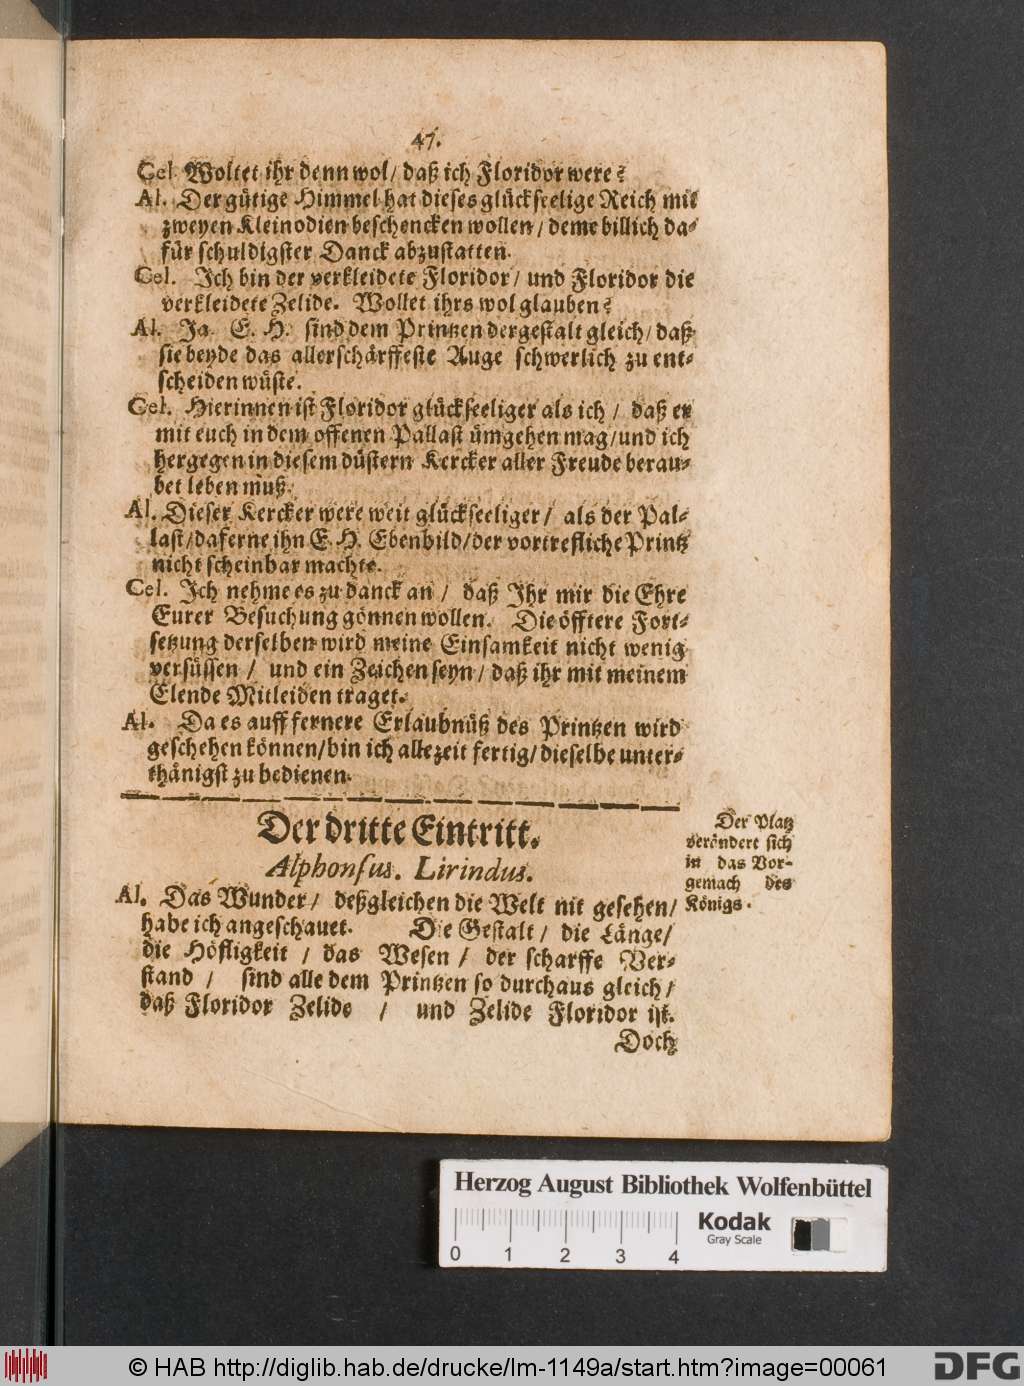 47.
Cel. Woltet ihr denn wol/ daß ich Floridor were?
Al. Der gütige Himmel hat dieses glückseelige Reich mit
zweyen Kleinodien beschencken wollen/ deme billich da-
für schuldigster Danck abzustatten.
Cel. Ich bin der verkleidete Floridor/ und Floridor die
verkleidete Zelide. Wollet ihrs wol glauben?
Al. Ja. E. H. sind dem Printzen dergestalt gleich/ daß
sie beyde das allerschärffeste Auge schwerlich zu ent-
scheiden wüste.
Cel. Hierinnen ist Floridor glückseeliger als ich / daß er
mit euch in dem offenen Pallast ümgehen mag/ und ich
hergegen in diesem düstern Kercker aller Freude berau-
bet leben muß.
Al. Dieser Kercker were weit glückseeliger/ als der Pal-
last/ daferne ihn E. H. Ebenbild/ der vortrefliche Printz
nicht scheinbar machte.
Cel. Ich nehme es zu danck an / daß Ihr mir die Ehre
Eurer Besuchung gönnen wollen. Die öfftere Fort-
setzung derselben wird meine Einsamkeit nicht wenig
versüssen / und ein Zeichen seyn/ daß ihr mit meinem
Elende Mitleiden traget.
Al. Da es auff fernere Erlaubnüß des Printzen wird
geschehen können/ bin ich allezeit fertig/ dieselbe unter-
thänigst zu bedienen.
Der dritte Eintritt.
Alphonsus. Lirindus.
Der Platz
verändert sich
in das Vor-
gemach des
Königs.
Al. Das Wunder/ deßgleichen die Welt nit gesehen/
habe ich angeschauet. Die Gestalt/ die Länge/
die Höfligkeit / das Wesen / der scharffe Ver-
stand / sind alle dem Printzen so durchaus gleich/
daß Floridor Zelide / und Zelide Floridor ist.
Doch
Herzog August Bibliothek Wolfenbüttel
Kodak
Gray Scale
0 1 2 3 4
© HAB http://diglib.hab.de/drucke/lm-1149a/start.htm?image=00061
DFG